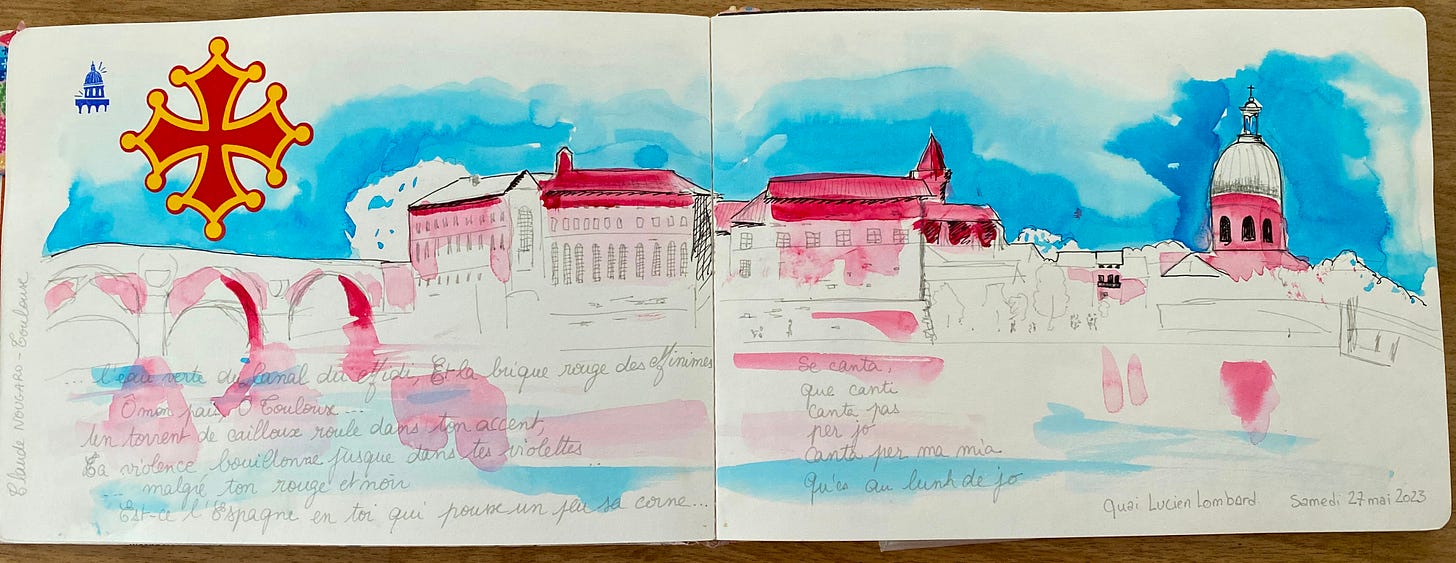 Claude NOUGARO - Toulouse
... l'eau verte du Canal du Midi, Et la brique rouge des Minimes
Ô mon païs, Ô Toulouse ...
Un torrent de cailloux roule dans ton accent,
Ta violence bouillonne jusque dans tes violettes
... malgré ton rouge et noir
Est-ce l'Espagne en toi qui pousse un peu sa corne...
Se canta,
que canti
canta pas
per jo
Canta per ma mia
Qu'es au lunh de jo
Quai Lucien Lombard Samedi 27 mai 2023